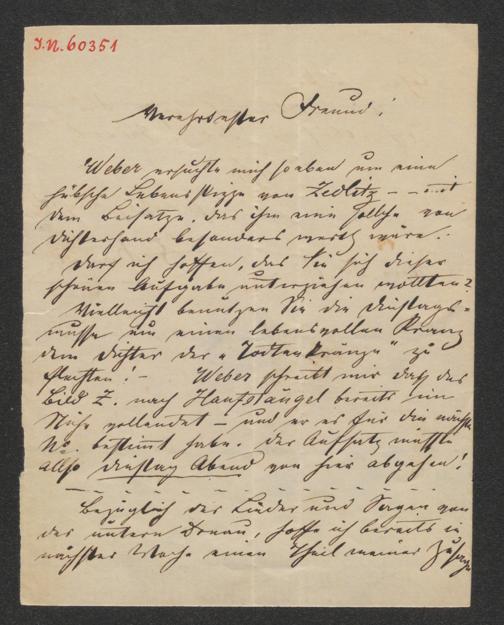 I.N. 60351
Verehrtester Freund!
Weber ersuchte mich soeben um eine
hübsche Lebensskizze von Zedlitz – – mit
dem Beisatze, das ihm eine solche von
Dichterhand besonders werth wäre.
Darf ich hoffen, das Sie sich dieser
schönen Aufgabe unterziehen wollten?
Vielleicht benutzen Sie die Dienstags-
musse um einen lebensvollen Kranz
dem Dichter der "Todtenkränze" zu
flechten! – Weber schreibt mir daß das
Bild Z. nach Hanfstängel bereits im
Stiche vollendet – und er es für die nächste
No. bestimt habe. Der Aufsatz müsste
also Dienstag Abend von hier abgehen!
Bezüglich der Lieder und Sagen von
der untern Donau, hoffe ich bereits in
nächster Woche einen Theil meiner Zusage